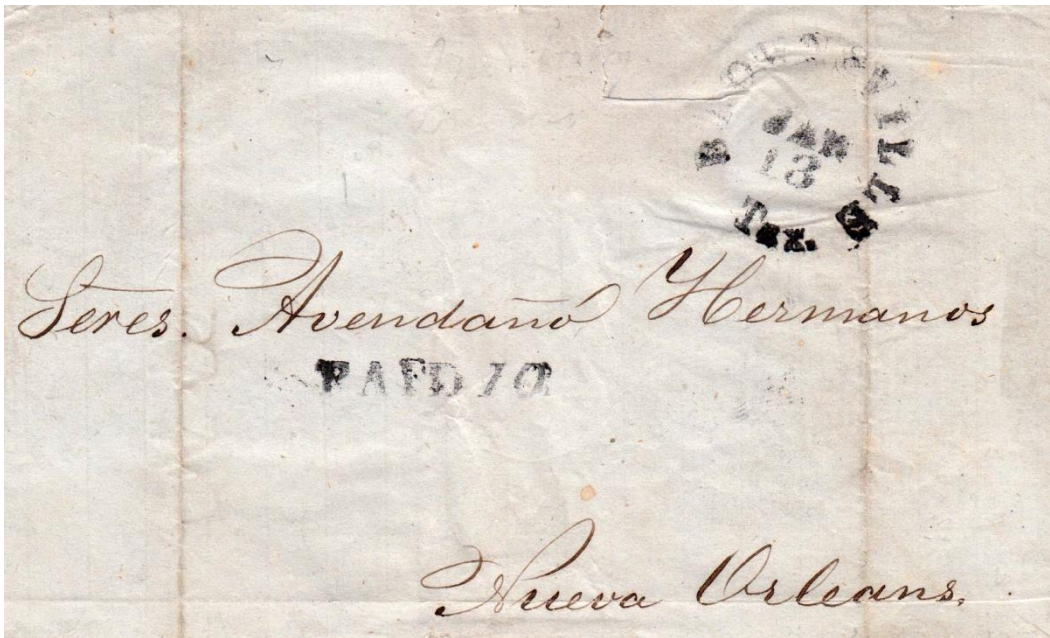 BROWNSVILLE
JAN
13
Tex.
Señres. Avendaño Hermanos
PAID 10
Nueva Orleans.